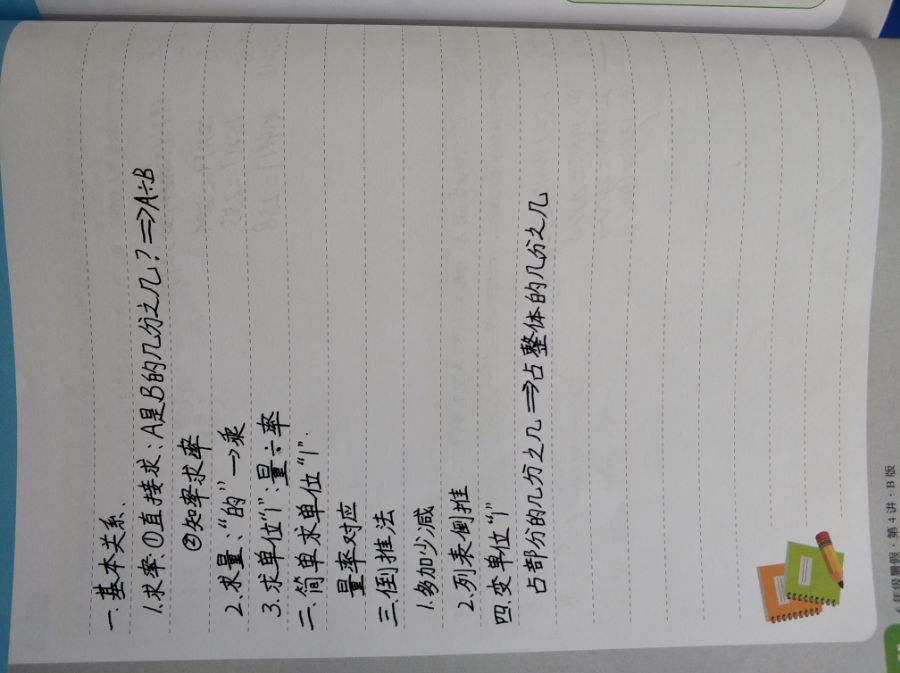 一.基本关系.
1.求率:①直接求:A是B的几分之几?⇒A÷B
②知率求率
2.求量:“的”→乘
3.求单位“1”:量÷率
二.简单求单位“1”.
量率对应
三.倒推法
1.多加少减
2.列表倒推
四.变单位“1”
占部分的几分之几⇒占整体的几分之几
年级暑假·第4讲·B版